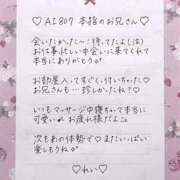 ♡ A180分 本指のお兄さん ♡
会いたかった〜!! 待ってたよ(泣)
お仕事忙しい中会いに来てくれて
本当にありがとう
お部屋入ってすぐに
お兄さんも… 珍しかったね?♡
いつもマッサージ中寝ちゃって本当に
可愛い お疲れ様だよ
次もあの体勢で またいっぱい
楽しもうね
♡ れい ♡